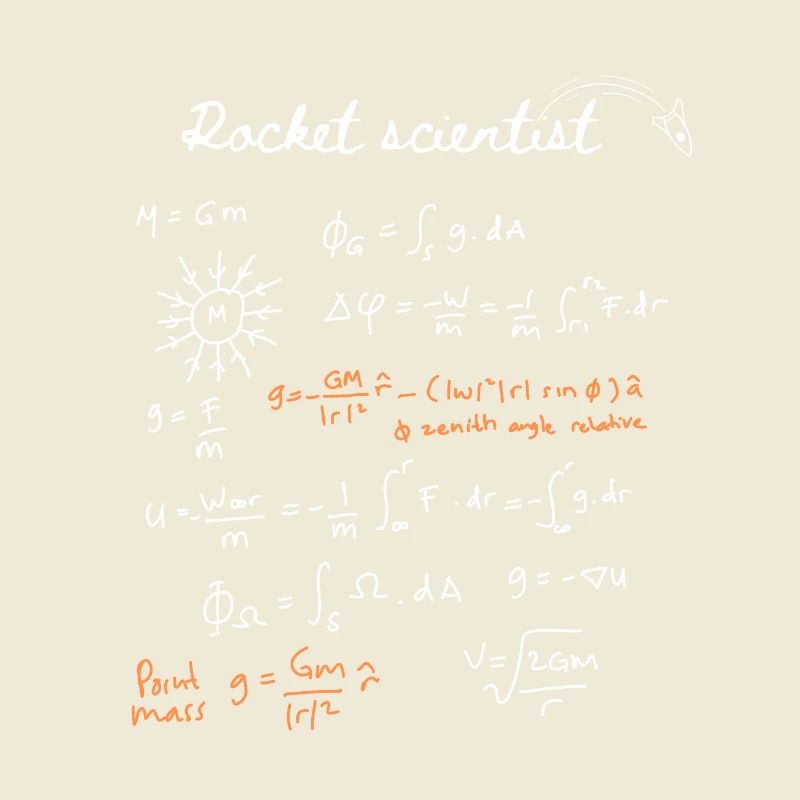 Rocket scientist
M = Gm
ϕ_G = ∫_S g. dA
M
Δφ = -W/m = -1/m ∫_r1^r2 F. dr
g = - GM/|r|² r̂ - (|w|²|r| sin ϕ) â
ϕ zenith angle relative
g = F/m
U = - W∞r/m = - 1/m ∫_∞^r F . dr = - ∫_∞^r g. dr
Φ_Ω = ∫_S Ω. dA
g = - ∇U
Point mass g = Gm/|r|² r̂
V = √2Gm/r